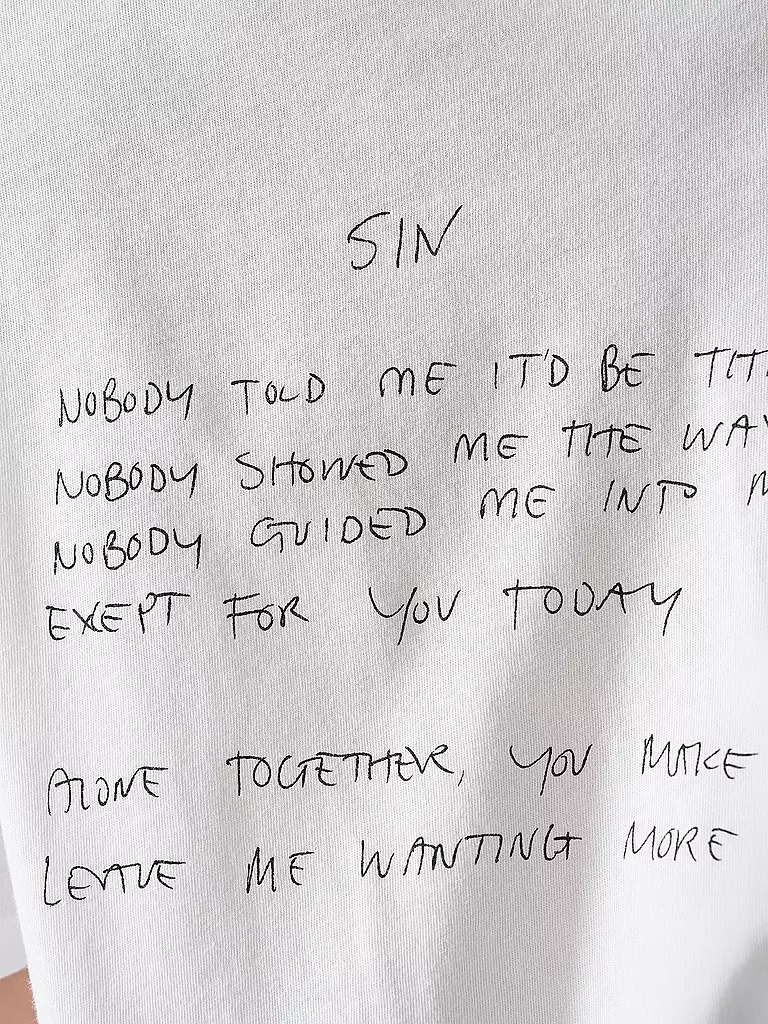 SIN
NOBODY TOLD ME IT'D BE
NOBODY SHOWED ME THE WAY
NOBODY GUIDED ME INTO
EXEPT FOR YOU TODAY
ALONE TOGETHER, YOU MAKE
LEAVE ME WANTING MORE